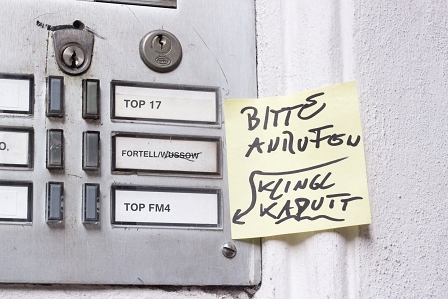 TOP 17
O.
FORTELL/WUSSOW
TOP FM4
BITTE
ANRUFEN
KLINGL
KAPUTT